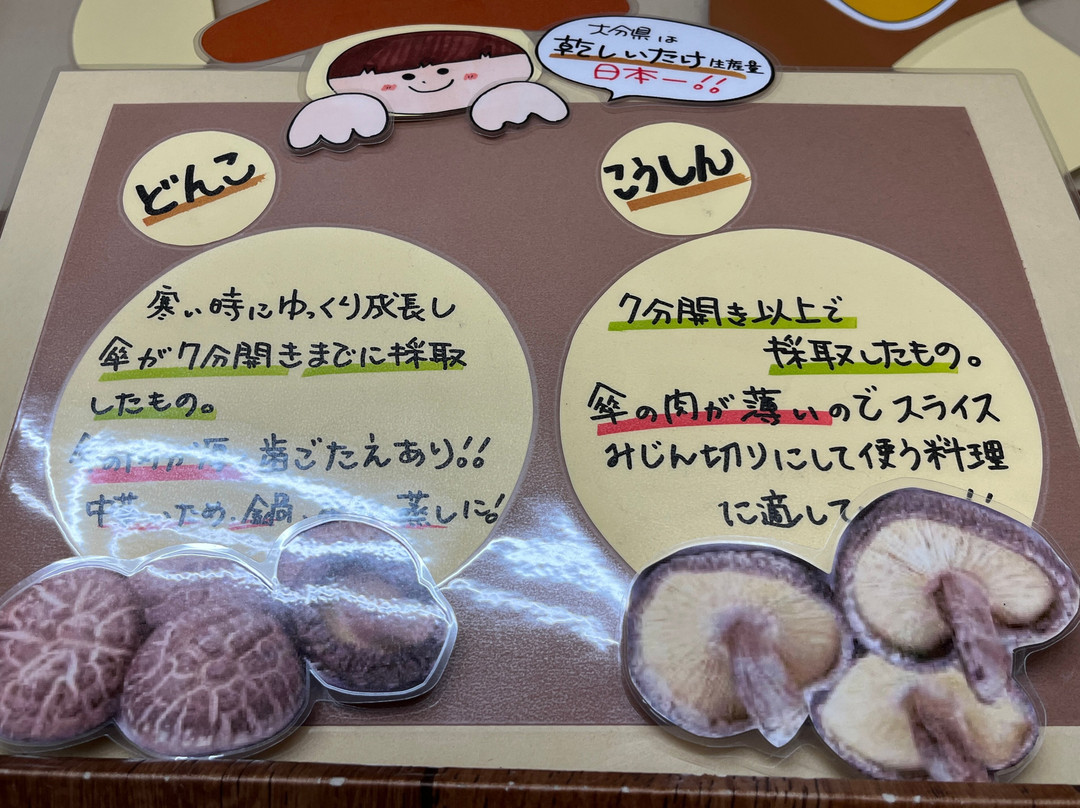 大分県は
乾しいたけ生産量
日本一!!
どんこ
寒い時にゆっくり成長し
傘が7分開きまでに採取
したもの。
歯ごたえあり!!
ため、鍋
蒸しに!
こうしん
7分開き以上で
採取したもの。
傘の肉が薄いのでスライス
みじん切りにして使う料理
に適して